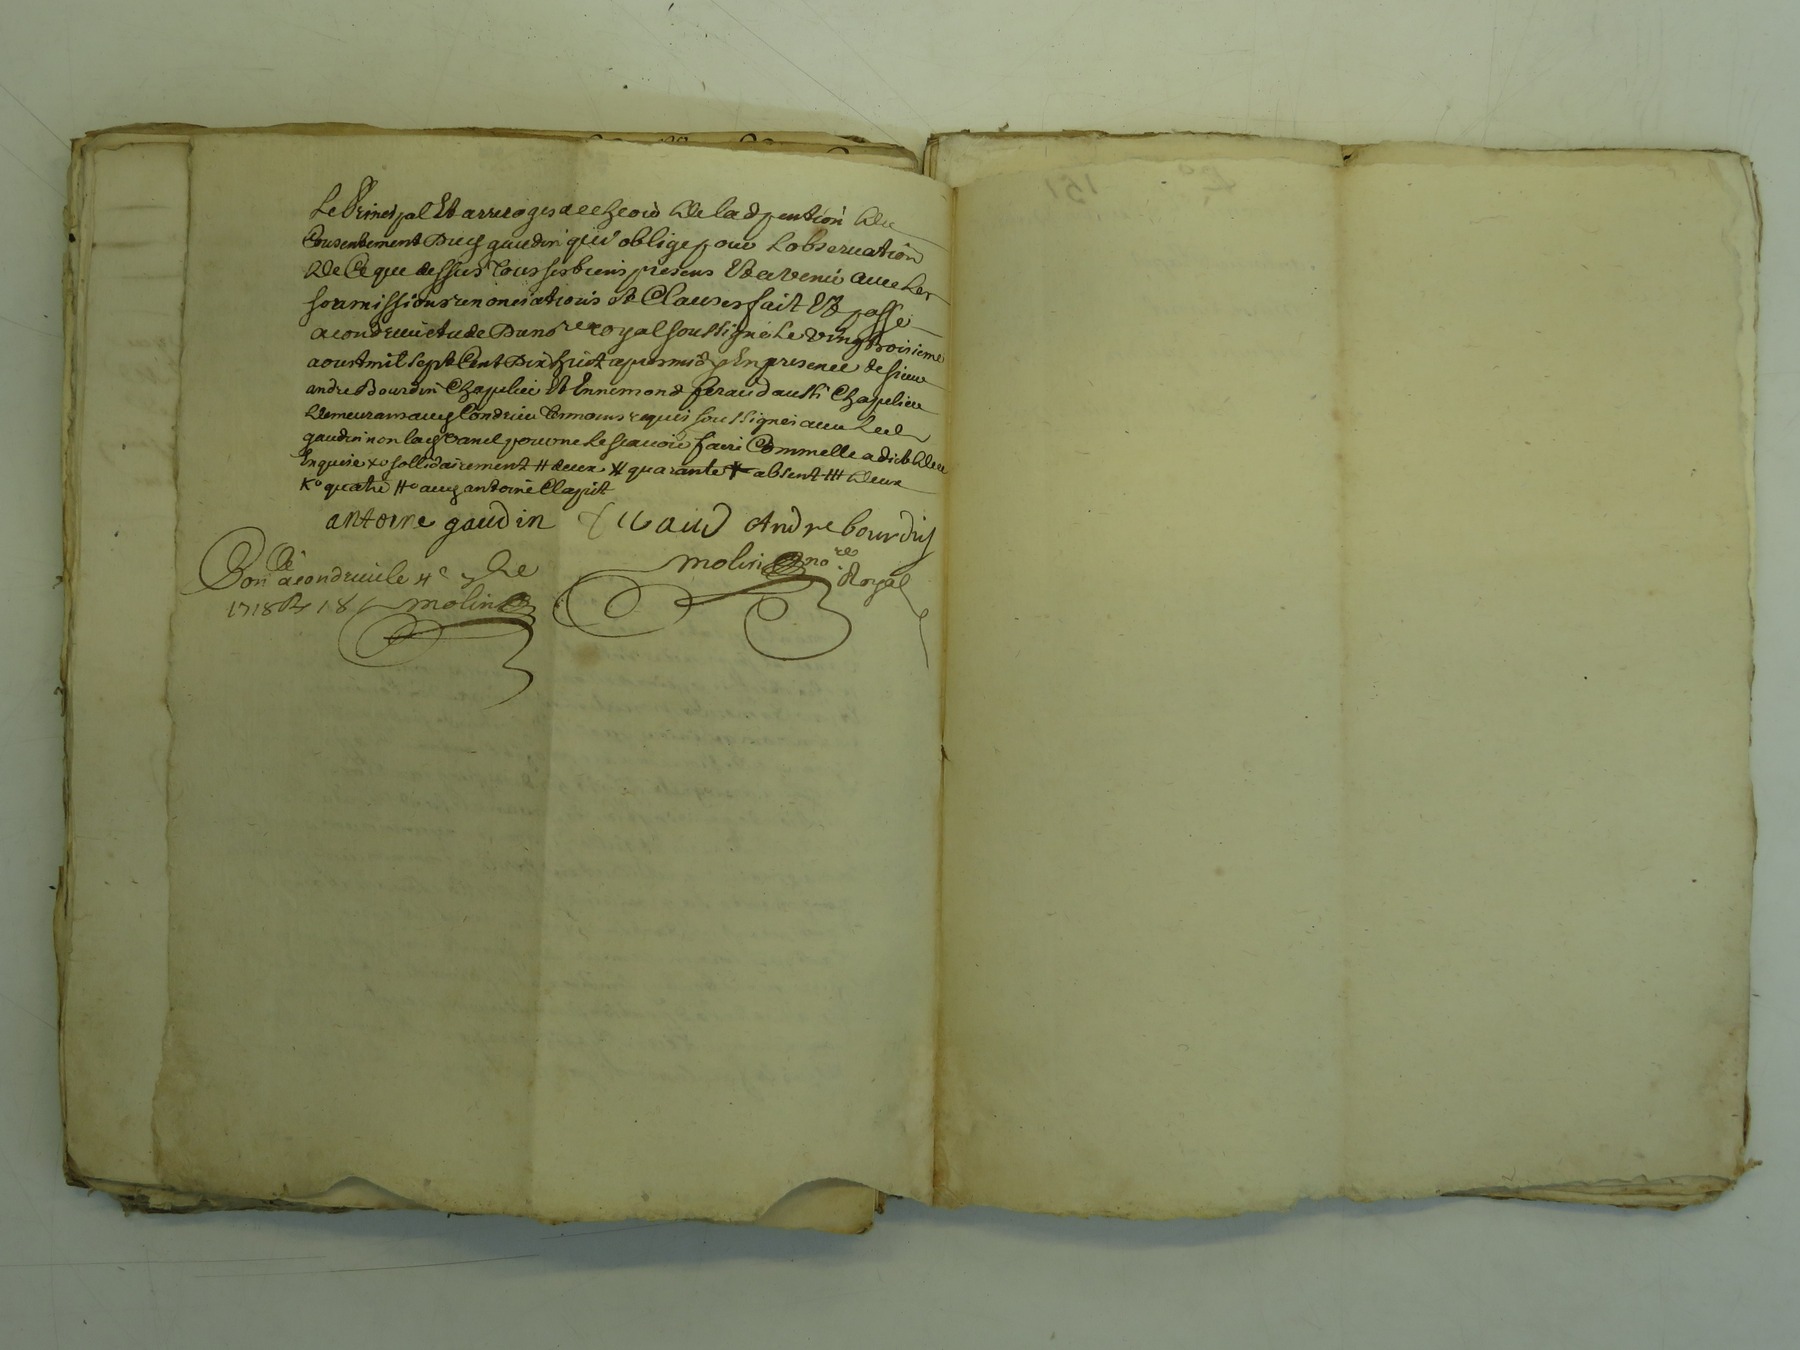 Le Principal Et arrerages de cheoir de lad pention du
Consentement Dud gaudin qui oblige pour Lobservation
de Ce que dessus Tous ses biens presens Et avenir avec Les
soumissions renonciations et Clauses fait Et passé
a condrieu etude Du no.re royal soussigné Le vingttroisieme
aoust mil sept Cent Dix huit apres midy En presence de sieur
andre Bourdin Chapelier Et Ennemond feraud aussi Chapelier
demeurans aud Condrieu temoins requis soussignés avec Led
gaudin non lad Canel pour ne Le scavoir faire Comme elle a dit de ce
Enquise xo sollidairement # deux # quarante absent # deux
Ko quatre #o aud antoine Clapit
antoine gaudin
feraud Andre bourdin
molin no.re
Royal
Con.lé a condrieu le 4e 7bre
1718 R 18 s molin
151